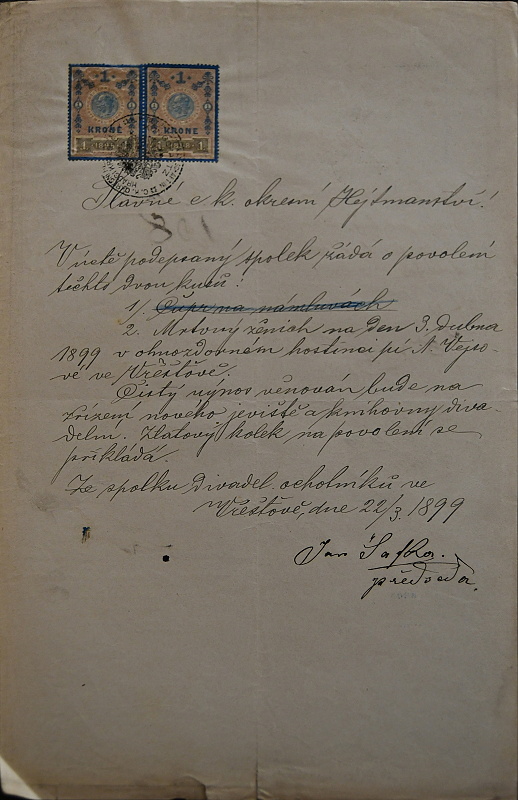 1 1
KRONE KRONE
1 1898 1 1 1898 1
Slavné c k. okresní Hejtmanství!
V úctě podepsaný spolek žádá o povolení
těchto dvou kusů:
1/ Čupr na námluvách
2. Mrtvý ženich na den 3. dubna
1899 v ohnozdorném hostinci pí A. Vejso-
vé ve Vřešťově.
Čistý výnos věnován bude na
zřízení nového jeviště a knihovny diva-
delní. Zlatový kolek na povolení se
přikládá.
Ze spolku divadel. ochotníků ve
Vřešťově, dne 22/3. 1899
Jan Šafka.
předseda.